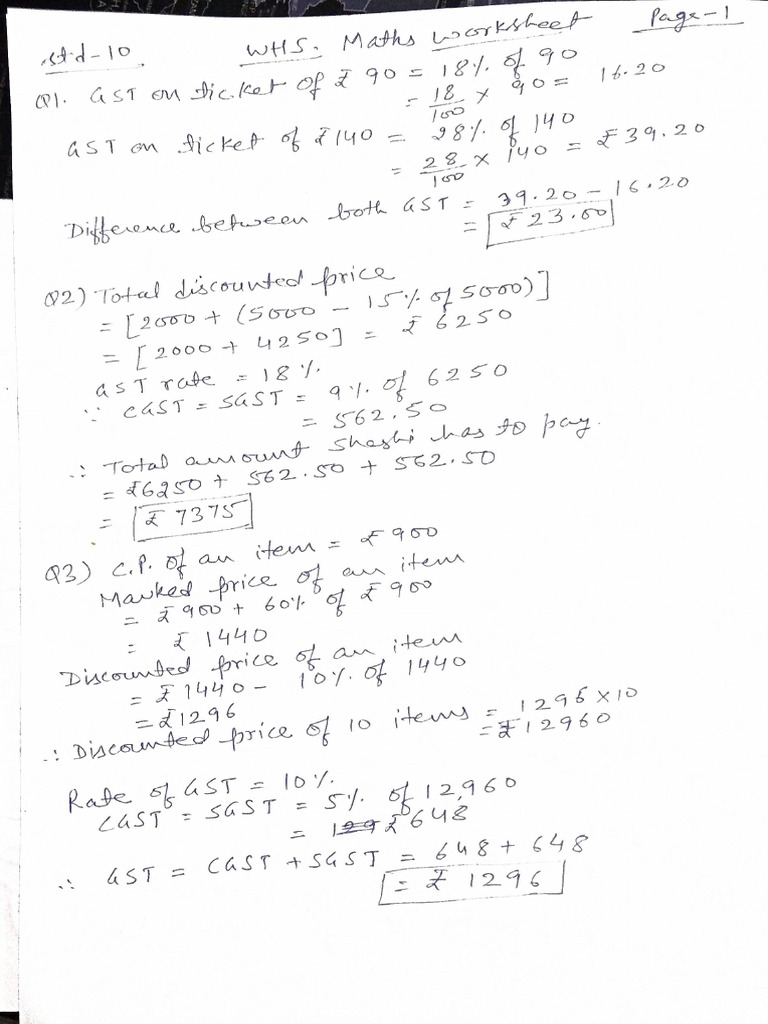 std-10 WHS. Maths worksheet Page-1
Q1. GST on ticket of ₹ 90 = 18% of 90
= 18/100 × 90 = 16.20
GST on ticket of ₹140 = 28% of 140
= 28/100 × 140 = ₹39.20
Difference between both GST = 39.20 - 16.20
= ₹23.00
Q2) Total discounted price
= [2000 + (5000 - 15% of 5000)]
= [2000 + 4250] = ₹ 6250
GST rate = 18%.
∵ CGST = SGST = 9% of 6250
= 562.50
∴ Total amount Shashi has to pay.
= ₹6250 + 562.50 + 562.50
= ₹ 7375
Q3) C.P. of an item = ₹900
Marked price of an item
= ₹900 + 60% of ₹900
= ₹ 1440
Discounted price of an item
= ₹1440 - 10% of 1440
= ₹1296
∴ Discounted price of 10 items = 1296 × 10
= ₹12960
Rate of GST = 10%.
CGST = SGST = 5% of 12,960
= ₹648
∴ GST = CGST + SGST = 648 + 648
= ₹ 1296